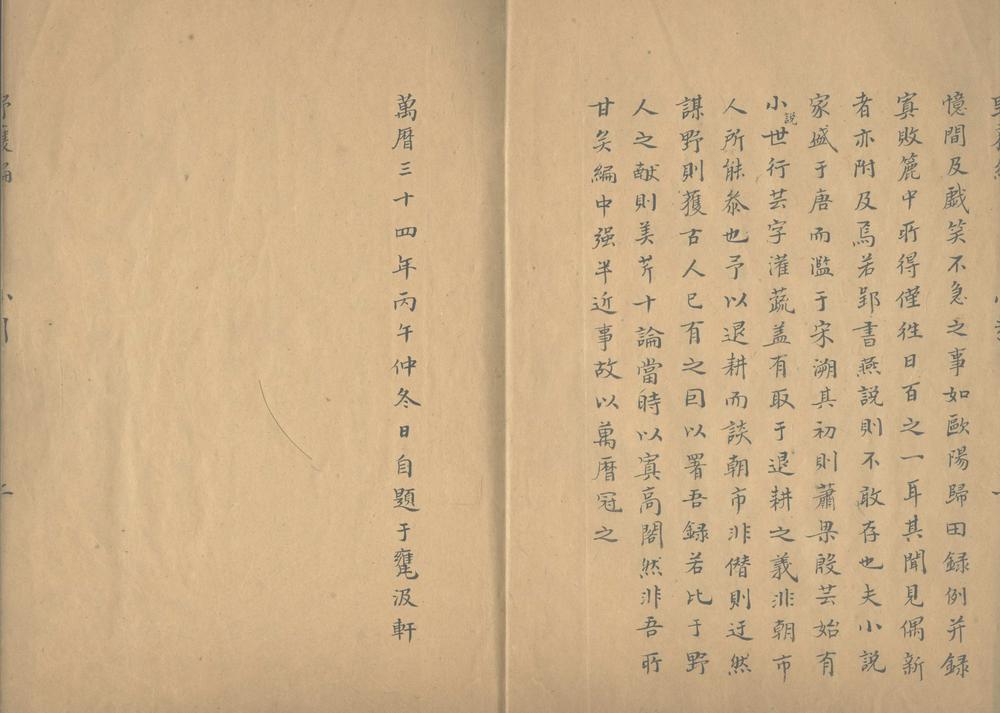 憶間及戯笑不急之事如歐陽歸田録例并録
寘敗簏中所得僅徃日百之一耳其聞見偶新
者亦附及焉若郢書燕説則不敢存也夫小説
家盛于唐而濫于宋溯其初則蕭梁殷芸始有
小説世行芸字灌蔬盖有取于退耕之義非朝市
人所能叅也予以退耕而談朝市非僭則迂然
謀野則獲古人已有之因以署吾録若比于野
人之献則美芹十論當時以寘高閣然非吾所
甘矣編中强半近事故以萬曆冠之
萬曆三十四年丙午仲冬日自題于甕汲軒